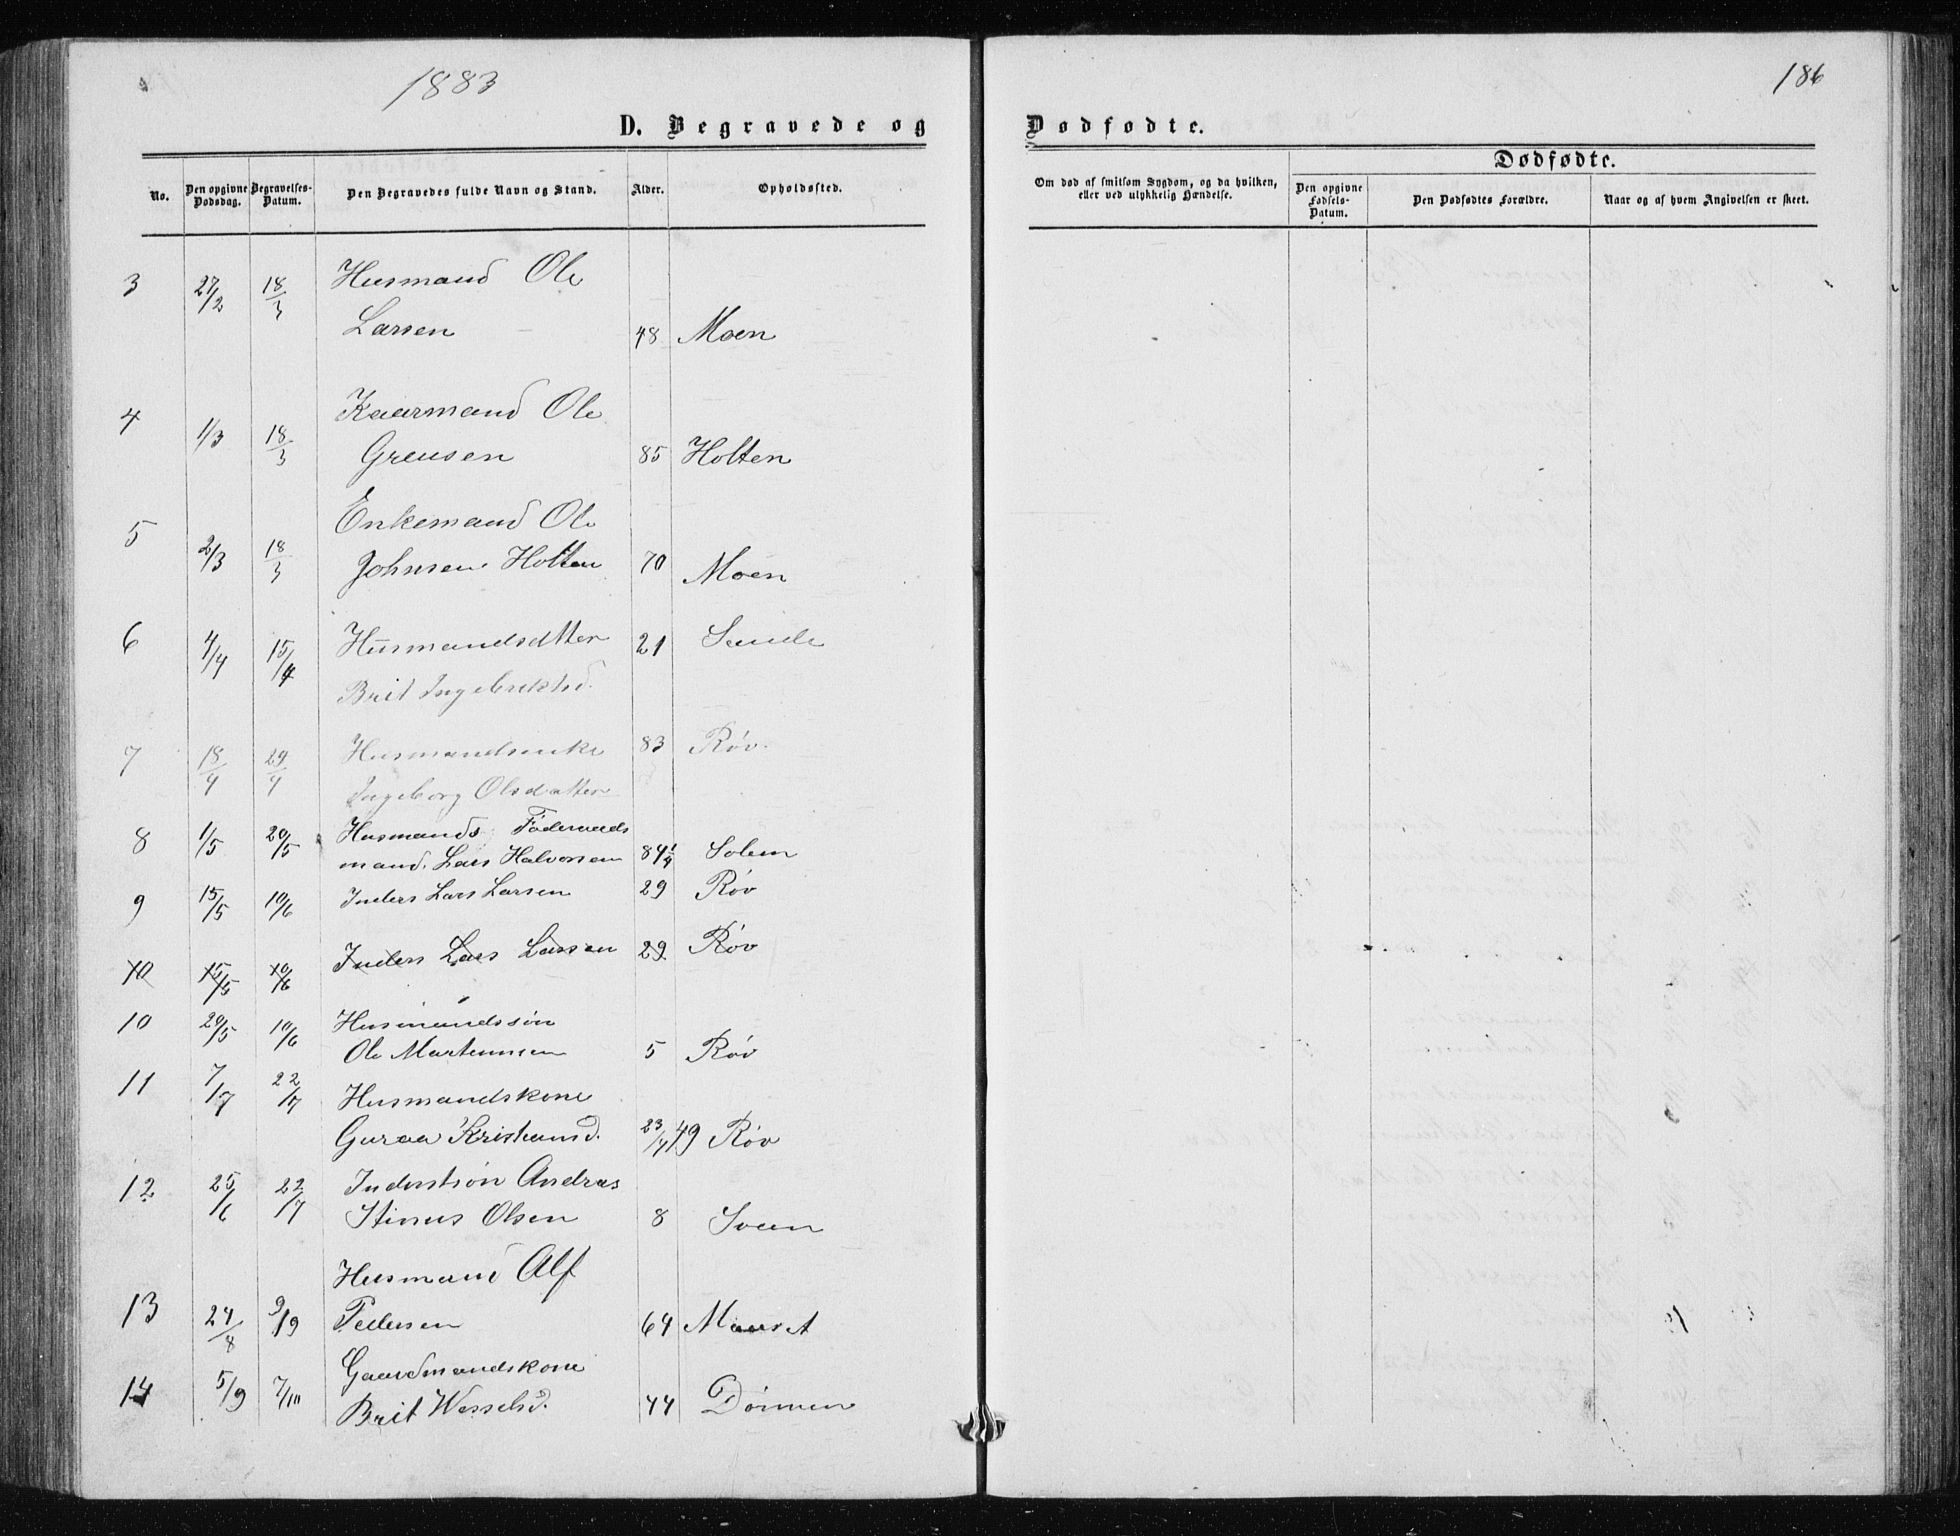 1883
186
D. Begravede og Dødfødte.
No. Den opgivne Dødsdag. Begravelses-Datum. Den Begravedes fulde Navn og Stand. Alder. Opholdssted.
Om død af smitsom Sygdom, og da hvilken, eller ved ulykkelig Hændelse.
Dødfødte.
Den opgivne Fødsels-Datum. Den Dødfødtes Forældre. Naar og af hvem Angivelsen er skeet.
3 27/2 18/3 Husmand Ole
Larsen 48 Moen
4 1/3 18/3 Kaarmand Ole
Greusen 85 Holten
5 2/3 18/3 Enkemand Ole
Johnsen Holten 70 Moen
6 4/4 15/4 Husmandsdtter 21 Sande
Brit Ingebrektsd.
7 18/4 29/4 Husmandsenke 83 Røv.
Ingeborg Olsdatter
8 1/5 20/5 Husmands Föderaads
mand. Lars Halvorsen 84 1/4 Solem
9 15/5 10/6 Inders Lars Larsen 29 Røv
10 15/5 10/6 Inders Lars Larsen 29. Røv
10 20/5 10/6 Husmandssøn
Ole Martennsen 5 Røv
11 7/7 22/7 Husmandskone
Guraa Kristiansd. 23/7 49 Røv
12 25/6 22/7 Inderstsøn Andreas
Stinus Olsen 8 Sveen
13 24/8 9/9 Husmand Alf
Pedersen 64 Mauset
14 5/9 7/10 Gaardmandskone
Brit Wesselsd. 44 Dørmen